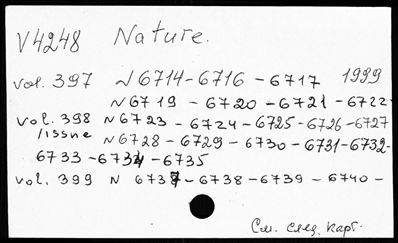 V4248 Nature.
vol. 397 N 6714-6716 - 6717 1999
N6719 - 6720 - 6721 - 6722
vol. 398 N 6723 - 6724 - 6725 - 6726 - 6727
/issue N 6728 - 6729 - 6730 - 6731 - 6732-
6733 - 6734 - 6735
vol. 399 N 6737 - 6738 - 6739 - 6740 -
См. след. карт.